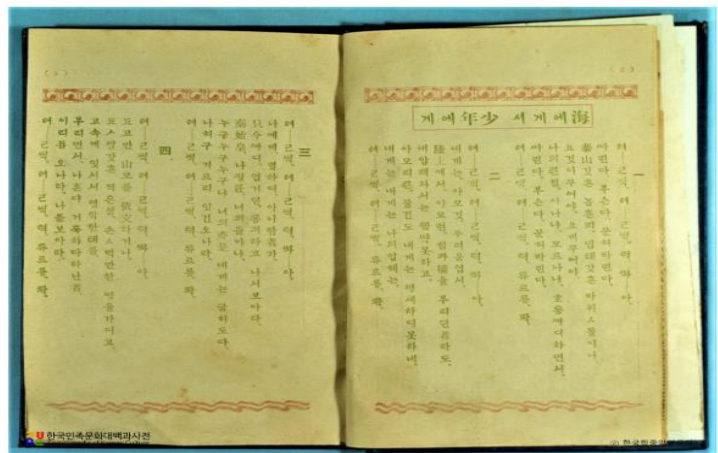 海에게서 少年에게
一
텨—ㄹ썩, 텨—ㄹ썩, 텩, 쏴—아.
따린다, 부슨다, 문허바린다,
泰山갓흔 놉흔뫼, 딥턔갓흔 바위ㅅ돌이나,
요것이무어야, 요게무어야,
나의큰힘, 아나냐, 모르나냐, 호통까디하면서,
따린다, 부슨다, 문허바린다,
텨—ㄹ썩, 텨—ㄹ썩, 텩, 튜르릉, 콱.
二
텨—ㄹ썩, 텨—ㄹ썩, 텩, 쏴—아.
내게는, 아모것, 두려움업서,
陸上에서, 아모런, 힘과權을 부리던者라도,
내압헤와서는 꼼땩못하고,
아모리큰, 물건도 내게는 행세하디못하네.
내게는 내게는 나의압헤는.
텨—ㄹ썩, 텨—ㄹ썩, 텩, 튜르릉, 콱.
三
텨—ㄹ썩, 텨—ㄹ썩, 텩, 쏴—아.
나에게, 뎔하디, 아니한者가,
只今까디, 업거던, 통긔하고 나서보아라.
秦始皇, 나팔륜, 너의들이냐,
누구누구누구냐 너의亦是 내게는 굽히도다,
나허구 겨르리 잇건오나라.
텨—ㄹ썩, 텨—ㄹ썩, 텩, 튜르릉, 콱.
四
텨—ㄹ썩, 텨—ㄹ썩, 텩, 쏴—아.
됴고만 山모를 依支하거나,
됴ㅅ쌀갓흔 뎍은섬, 손ㅅ벽만한 땅을가디고,
고속에 잇서서 영악한톄를,
부리면서, 나혼댜 거룩하다하난者,
이리둄 오나라, 나를보아라.
텨—ㄹ썩, 텨—ㄹ썩, 텩, 튜르릉, 콱.
한국민족문화대백과사전